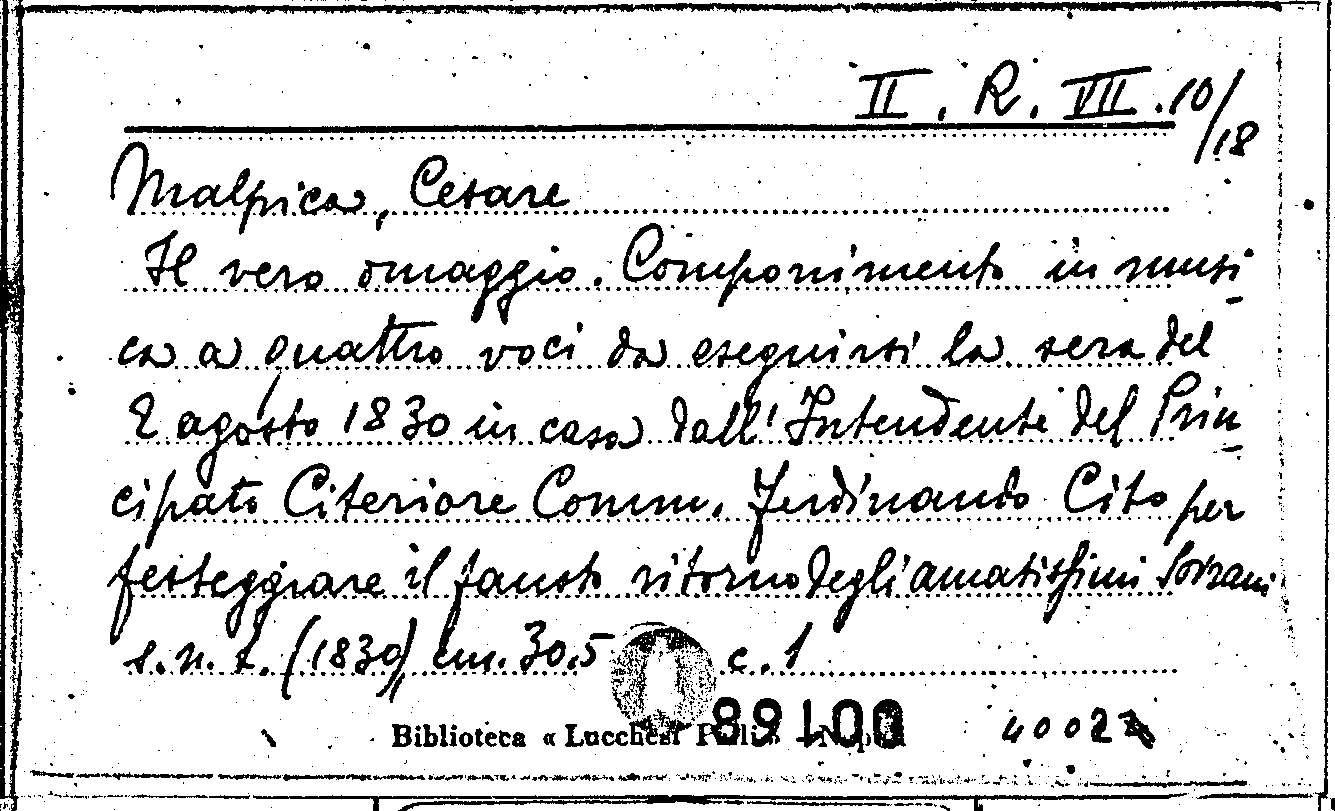 II. R. VII. 10/18
Malpica, Cesare
Il vero omaggio. Componimento in musi-
ca a quattro voci da eseguirsi la sera del
2 agosto 1830 in casa dall'Intendente del Prin-
cipato Citeriore Comm. Ferdinando Cito per
festeggiare il fausto ritorno degli amatissimi Sovrani
s.n.t. (1830) cm. 30,5 c. 1
89100
Biblioteca « Lucchesi Palli» - Napoli